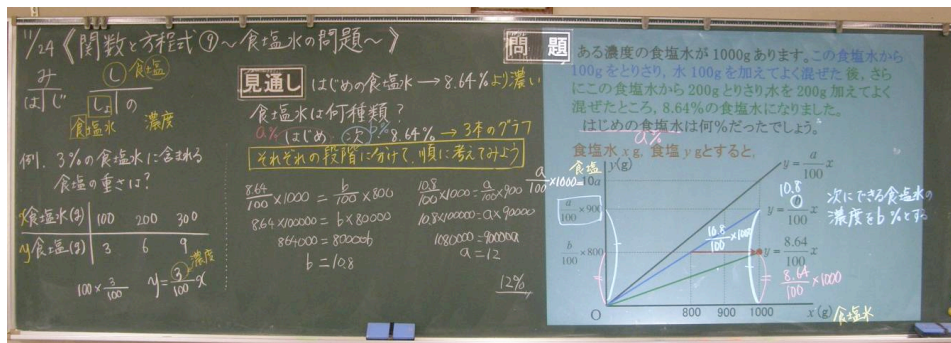 11/24 《関数と方程式⑨～食塩水の問題～》
み
は じ
し 食塩
しょ の
食塩水 濃度
例. 3%の食塩水に含まれる
食塩の重さは?
x食塩水(g) 100 200 300
y食塩(g) 3 6 9
100×3/100 y=3/100x 濃度
見通し はじめの食塩水→8.64%より濃い
食塩水は何種類?
a% b%
はじめ 次 8.64% →3本のグラフ
それぞれの段階に分けて、順に考えてみよう
8.64/100×1000=b/100×800
8.64×100000=b×80000
864000=80000b
b=10.8
10.8/100×1000=a/100×900
10.8×100000=a×90000
1080000=90000a
a=12
12%
問題
ある濃度の食塩水が1000gあります。この食塩水から
100gをとりさり、水100gを加えてよく混ぜた後、さら
にこの食塩水から200gとりさり水を200g加えてよく
混ぜたところ、8.64%の食塩水になりました。
はじめの食塩水は何%だったでしょう。
a%
食塩水 x g, 食塩 y g とすると,
食塩 y(g)
a/100×1000=10a
a/100×900
b/100×800
y=a/100x
10.8
y=b/100x
y=8.64/100x
10.8/100×1000
8.64/100×1000
次にできる食塩水の
濃度をb%とする
O 800 900 1000 x(g) 食塩水